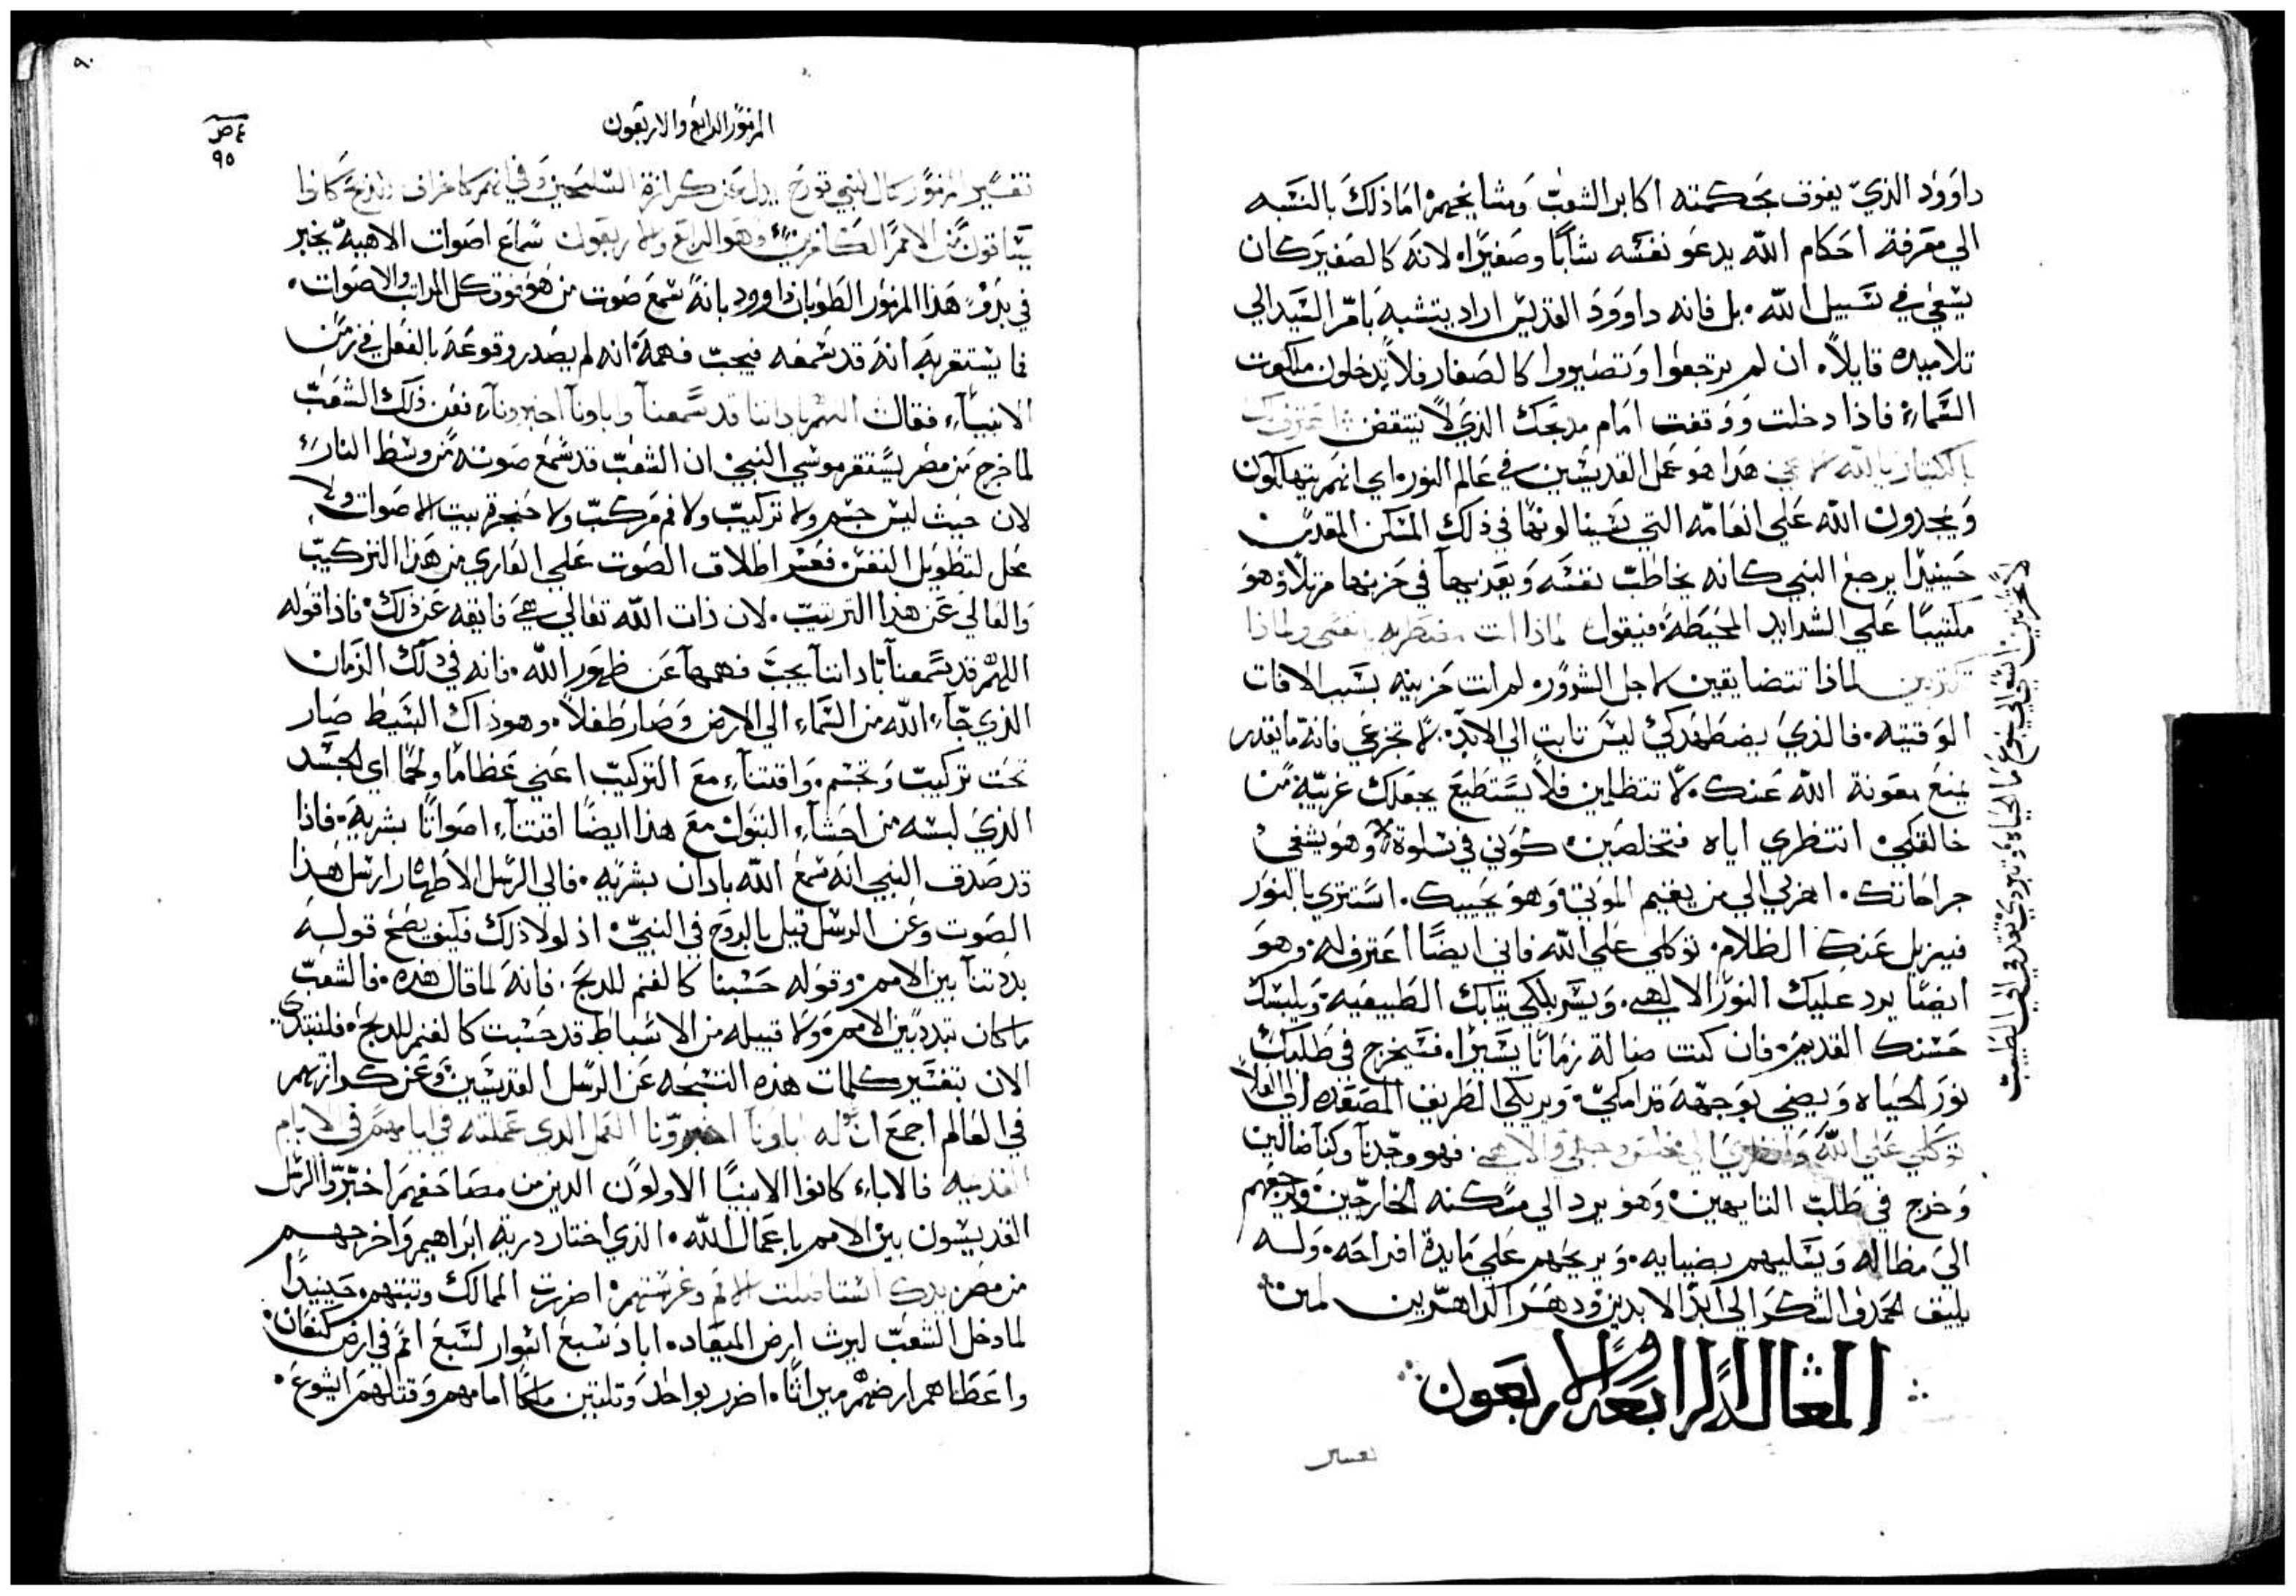 داوود الذي يفوق بحكمته اكابر الشعب ومشايخهم اما ذلك بالنسبه
الي معرفة احكام الله يدعو نفسه شابا وصغيرا لانه كالصغير كان
يسعي في سبيل الله بل فانه داوود القديس اراد يتشبه بامر السيد الي
تلاميده قايلا ان لم ترجعوا وتصيروا كالصغار فلا تدخلون ملكوت
السماء فاذا دخلت ووقفت امام مدبحك الذي لا ينتقض
هدا هو عمل القديسين في عالم النور اي انهم يتهللون
ويمجدون الله علي انعامه التي سينالونها في ذلك المسكن المقدس
حينيدا يرجع النبي كانه يخاطب نفسه ويعذبها في حزنها مرتلا وهو
مكتيبا علي الشدايد المحيطة فيقول لماذا انت مضطربه يا نفسي ولماذا
لماذا تتضايقين لاجل الشرور لم انت حزينه بسبب الافات
الوقتيه فالذي يضطهدكي ليس تابت الي الابد لا تجزعي فانه ما يقدر
يمنع معونة الله عنك لا تتظلمين فلا يستطيع يجعلك غريبة من
خالقكي انتظري اياه فتخلصين كوني في سلوة وهو يشفي
جراحاتك اهربي الي من يقيم الموتي وهو يحييك استتري بالنور
فيزيل عنك الظلام توكلي علي الله فاني ايضا اعترف له وهو
ايضا يرد عليك النور الالهي ويسربلكي تيابك الطبيعيه ويلبسك
حسنك القديم فان كنت ضالة زمانا يسيرا فسيخرج في طلبك
نور الحياه ويضي بوجهه قدامكي ويريكي الطريق المصعده الي العلا
توكلي علي الله فهو وجدنا وكنا ضالين
وخرج في طلب التايهين وهو يرد الي مسكنه الخارجين ويرجعهم
الي مظاله ويعليهم بضيايه ويريحهم علي مايدة افراحه وله
يليق الحمد والشكر الي ابد الابدين ودهر الداهرين امين
المقاله الرابعه والاربعون
تفسير
المزمور الرابع والاربعون
تفسير المزمور لبني قورح يدل عن كرازة السليحين وفي انهم كاخراف للدبح كانوا
يساقون من الامم الكافرين وهو الرابع والاربعون سماع اصوات الاهية يخبر
في بدو هذا المزمور الطوبان داوود بانه سمع صوت من هو فوق كل المراتب والاصوات
فما يستقر به انه قد سمعه فيجب فهمه انه لم يصدر وقوعه بالفعل في زمن
الانبياء فقال اللهم باداننا قد سمعنا واباونا اخبرونا فعن ذلك الشعب
لما خرج من مصر يستقر موسي النبي ان الشعب قد سمع صوته من وسط النار
لان حيث ليس جسم ولا تركيب ولا فم مركب ولا حنجرة بيت الاصوات ولا
محل لتطويل النفس فعسر اطلاق الصوت علي العاري من هذا التركيب
والعالي عن هذا الترتيب لان ذات الله تعالي هي فايقه عن ذلك فاذا قوله
اللهم قد سمعنا باداننا يجب فهمها عن ظهور الله فانه في ذلك الزمان
الذي جاء الله من السماء الي الارض وصار طفلا وهو ذاك البسيط صار
تحت تركيب وتجسم واقتناء مع التركيب اعني عظاما ولحما اي الجسد
الذي لبسه من احشاء البتول مع هذا ايضا اقتناء اصواتا بشرية فاذا
قد صدق النبي انه سمع الله بادان بشريه فالي الرسل الاطهار ارسل هذا
الصوت وعن الرسل قيل بالروح في النبي اذ لولا ذلك فكيف يصح قوله
بددتنا بين الامم وقوله حسبنا كالغنم للدبح فانه لما قال هذه فالشعب
ما كان تبدد بين الامم ولا قبيله من الاسباط قد حسبت كالغنم للدبح فلنبتدي
الان بتفسير كلمات هذه التسبحه عن الرسل القديسين وعن كرازتهم
في العالم اجمع اباونا اخبرونا العمل الدي عملته في ايامهم في الايام
القديمه فالاباء كانوا الانبيا الاولون الدين من مصاحفهم اختبروا الرسل
القديسون بين الامم باعمال الله الذي اختار درية ابراهيم واخرجهم
من مصر يدك استاصلت الامم وغرستهم اضررت الممالك وتبتهم حينيدا
لما دخل الشعب ليرث ارض الميعاد اباد سبع اسوار لسبع امم في ارض كنعان
واعطاهم ارضهم ميراثا اضرر بواحد وتلتين ملكا امامهم وقتلهم ايشوع